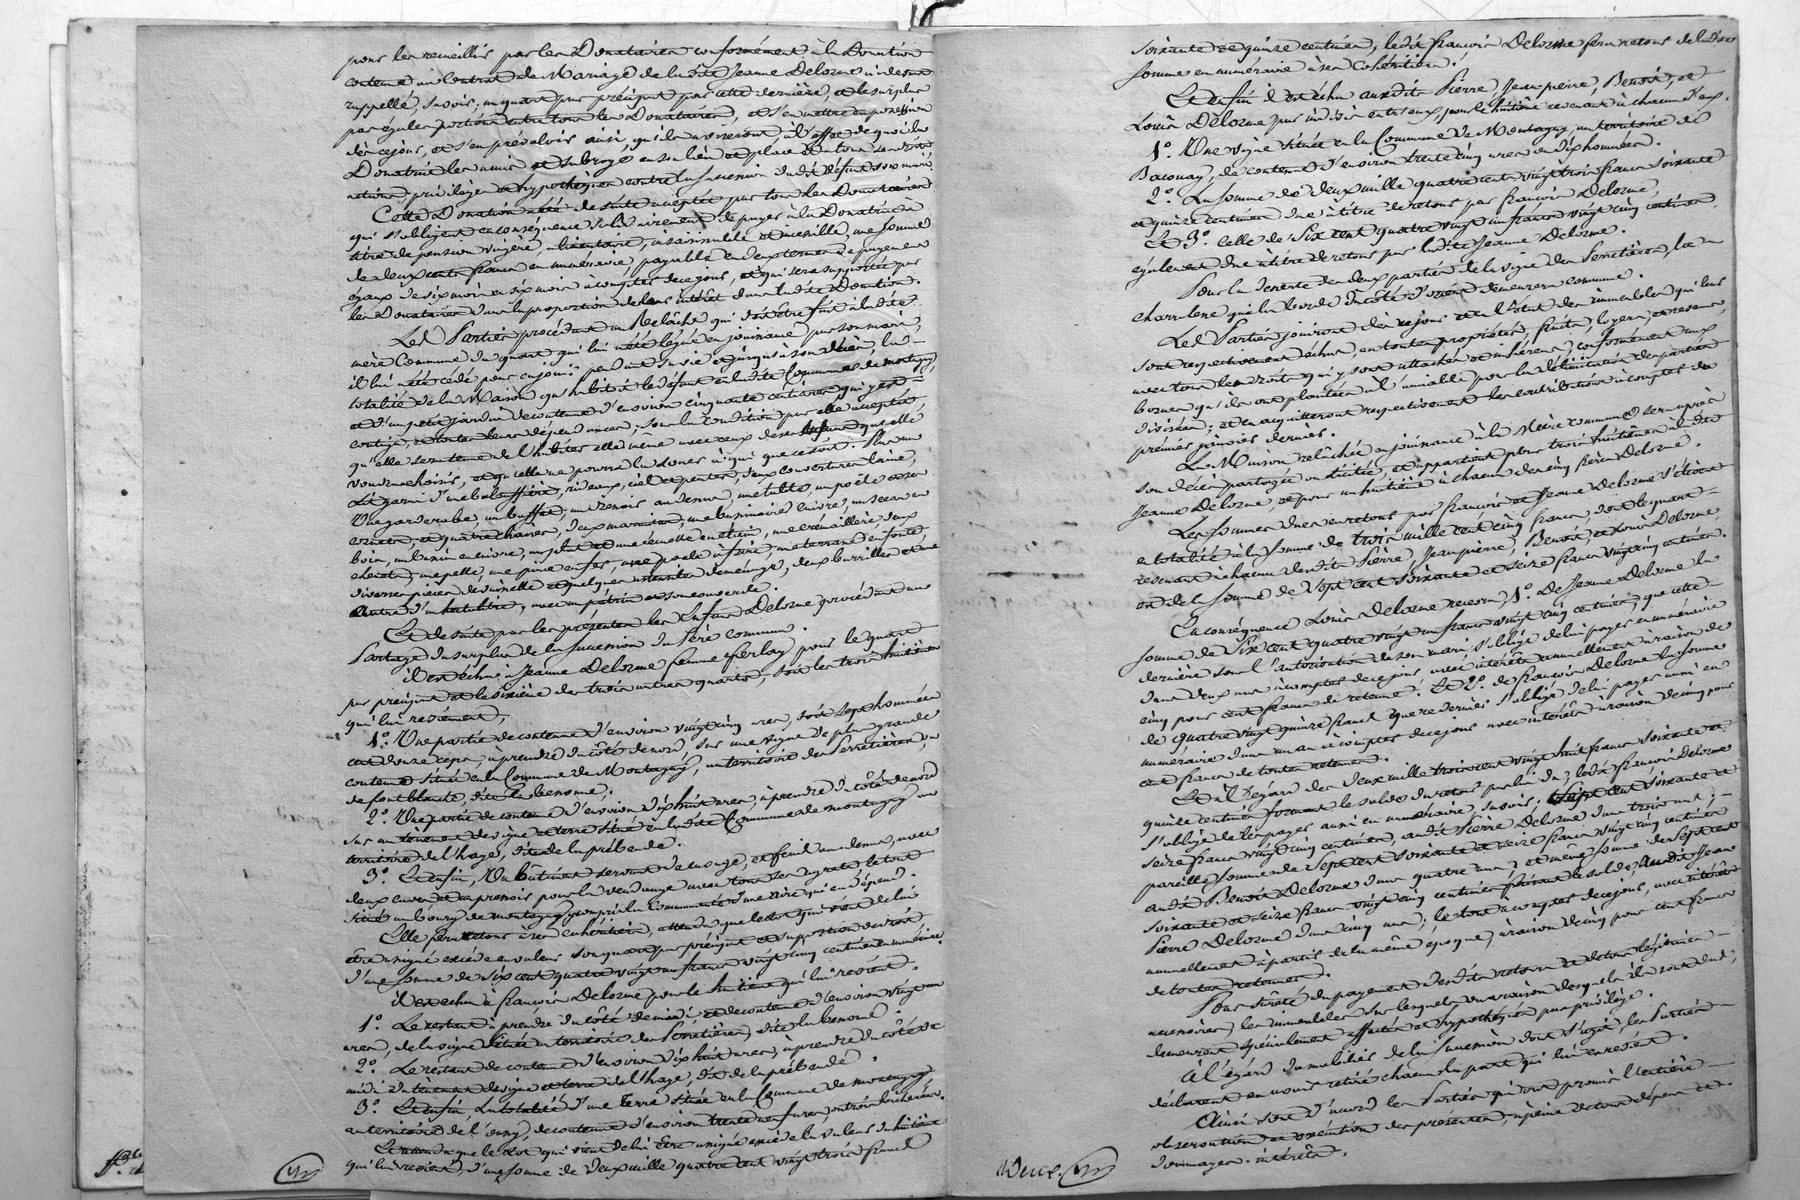 pour les recueillir par les Donataires conformément à la Donation
contenue au Contrat de Mariage de ladite Jeanne Delorme ci dessus
rappellé, savoir, un quart par préciput par cette dernière, et le surplus
par égales portions entre tous les Donataires, et s'en mettre en possession
dès ce jour, et s'en prévaloir ainsi qu'ils aviseront à l'effet de quoi la
Donatrice les a mis et subrogé en son lieu et place et en tous ses droits
actions, privilège et hypothèques contre la succession dudit défunt son mari.
Cette Donation a été de suite acceptée par tous les Donataires
qui s'obligent en conséquence solidairement de payer à la Donatrice à
titre de pension viagère, alimentaire, insaisissable et incessible, une somme
de deux cents francs en numéraire, payable en deux termes et payemens
égaux de six mois en six mois à compter de ce jour, et qui sera supportée par
les Donataires dans la proportion de leur intérêt dans ladite Donation.
Les Parties procédant au Relâche qui doit être fait à ladite
mère Commune du quart qui lui a été légué en jouissance par son mari,
il lui a été cédé pour en jouir pendant sa vie et jusqu'à son décès, la
totalité de la Maison qu'habitait le défunt en ladite Commune de Montagny,
et d'un petit jardin de contenue d'environ cinquante centiares qui y est
contigu, et toutes leurs dépendances; sous la condition par elle acceptée
qu'elle sera tenue de l'habiter elle même avec ceux de ses enfans qu'elle
voudra choisir, et qu'elle ne pourra la louer à qui que ce soit. Plus un
Lit garni d'une balouffière, rideaux, ciel et pentes, deux couvertures laine,
Une garderobe, un buffet, un tiroir au dessus, une table, un poêle et son
cornet, et quatre chaises, deux marmites, une bassinoire cuivre, un seau en
bois, un bassin en cuivre, un plat et une écuelle en étain, une crémaillère, deux
chenets, une pelle, une pince en fer, une poele à frire, une terrasse en fonte,
diverses pièces de vaisselle et quelques ustensiles de ménage, deux barrilles et une
autre d'un hectolitre, avec un pétrin et son couvercle.
Et de suite par les présentes les Enfans Delorme procédant au
Partage du surplus de la succession du Père commun.
il est échu à Jeanne Delorme femme Ferlay, pour le quart
par préciput et le sixième des trois autres quarts, soit les trois huitièmes
qui lui reviennent,
1º. Une partie de contenue d'environ vingt cinq ares, soit sept hommées
cent douze ceps, à prendre du côté de nord, sur une vigne de plus grande
contenue située en la Commune de Montagny, au territoire des Serretières, ou
de font blanche, dite la benome;
2º. Une partie de contenue d'environ dixhuit ares, à prendre du côté de nord
sur un tènement de vigne et terre situé en ladite Commune de Montagny au
territoire de l'haye, dit de la prébende.
3º. Et enfin, Un bâtiment servant de cuvage, et fenil au dessus, avec
deux cuves et un pressoir pour la vendange avec tous ses agrats le tout
situé au bourg de Montagny, y compris la Communauté d'une aire qui en dépend.
Elle fera retour à ses cohéritiers, attendu que le lot qui vient de lui
être assigné excède en valeur son quart par préciput et sa portion de droit
d'une somme de Six cent quatre vingt un francs vingt cinq centimes en numéraire.
il est échu à françois Delorme pour le huitième qui lui revient.
1º. Le restant à prendre du côté de midi et de contenue d'environ vingt un
ares, de la vigne située au territoire des Serretières, dite la benome.
2º. Le restant de contenue d'environ dixhuit ares, à prendre du côté de
midi du tènement de vigne et terre de l'haye, dit de la prébende.
3º. Et enfin, La totalité d'une terre située en la Commune de Montagny
au territoire de l'orme, de contenue d'environ trente neuf ares ou trois bicherées.
Et attendu que le lot qui vient de lui être assigné excède la valeur du huitième
qui lui revient, d'une somme de Deux mille quatre cent vingt trois francs
soixante et quinze centimes, ledit francois Delorme fera retour de ladite
somme en numéraire à ses Cohéritiers.
Et enfin il est échu auxdits Pierre, Jeanpierre, Benoît, et
Louis Delorme par indivis entr'eux, pour le huitième revenant à chacun d'eux.
1º. Une vigne située en la Commune de Montagny, au territoire de
Bacouay, de contenue d'environ trente cinq ares ou dix hommées.
2º. La somme de Deux mille quatre cent vingt trois francs soixante
et quinze centimes due à titre de retour par françois Delorme,
Et 3º. celle de Six cent quatre vingt un francs vingt cinq centimes
également due à titre de retour par ladite Jeanne Delorme.
Pour la desserte des deux parties de la vigne des Serretières, la
charrière qui la borde du côté d'orient demeurera commune.
Les Parties jouiront dès ce jour et en l'état des immeubles qui leur
sont respectivement échus, en toutes propriétés, fruits, loyers et revenus,
avec tous les droits qui y sont attachés et inhérens, conformément aux
bornes qu'ils ont plantées à l'amiable pour la délimitation des parties
divisées; et en acquitteront respectivement les contributions à compter du
premier janvier dernier.
La Maison relâchée en jouissance à la Mère commune sera après
son décès partagée ou licitée, et appartient pour trois huitièmes à ladite
Jeanne Delorme, et pour un huitième à chacun des cinq frères Delorme.
Les sommes dues en retour par françois et Jeanne Delorme s'élèvent
en totalité à la somme de trois mille cent cinq francs, dont le quart
revenant à chacun desdits Pierre, Jeanpierre, Benoît, et Louis Delorme,
est de la somme de Sept cent soixante et seize francs vingt cinq centimes.
En conséquence Louis Delorme recevra, 1º. De Jeanne Delorme la
somme de Six cent quatre vingt un francs vingt cinq centimes, que cette
dernière sous l'autorisation de son mari, s'oblige de lui payer en numéraire
dans deux ans à compter de ce jour, avec intérêts annuellement à raison de
cinq pour cent francs de retenue. Et 2º. de françois Delorme la somme
de quatre vingt quinze francs que ce dernier s'oblige de lui payer aussi en
numéraire dans un an à compter de ce jour avec intérêts à raison de cinq pour
cent francs de toutes retenues.
Et à l'égard des Deux mille trois cent vingt huit francs soixante et
quinze centimes formant le solde du retour par lui dû, ledit françois Delorme
s'oblige de les payer aussi en numéraire, savoir: Sept cent soixante et
seize francs vingt cinq centimes, audit Pierre Delorme dans trois ans;
pareille somme de Sept cent soixante et seize francs vingt cinq centimes
audit Benoît Delorme dans quatre ans; et même somme de Sept cent
soixante et seize francs vingt cinq centimes formant le solde, audit Jean
Pierre Delorme dans cinq ans; le tout à compter de ce jour, avec intérêts
annuellement à partir de la même époque, à raison de cinq pour cent francs
de toutes retenues.
Pour sûreté du payement desdits retours et de tous légitimes
accessoires, les immeubles sur lesquels ou à raison desquels ils sont dus,
demeurent spécialement affectés et hypothéqués par privilège.
A l'égard du mobilier de la succession dont s'agit, les Parties
déclarent en avoir retiré chacun la part qui lui en revient.
Ainsi sont d'accord les Parties qui ont promis l'entière
observation et exécution des présentes, à peine de tous dépens et
dommages-intérêts.